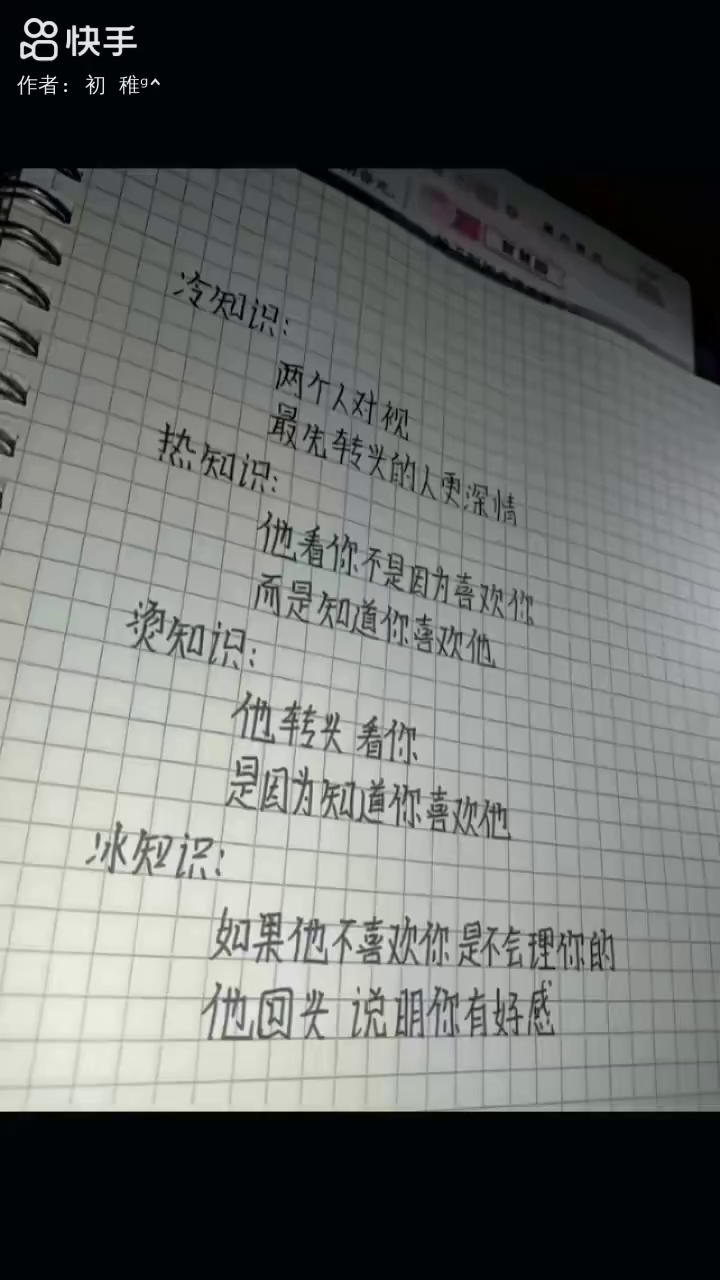 快手
作者: 初 稚ᵍ^
冷知识:
两个人对视
最先转头的人更深情
热知识:
他看你不是因为喜欢你
而是知道你喜欢他
烫知识:
他转头 看你
是因为知道你喜欢他
冰知识:
如果他不喜欢你是不会理你的
他回头 说明你有好感